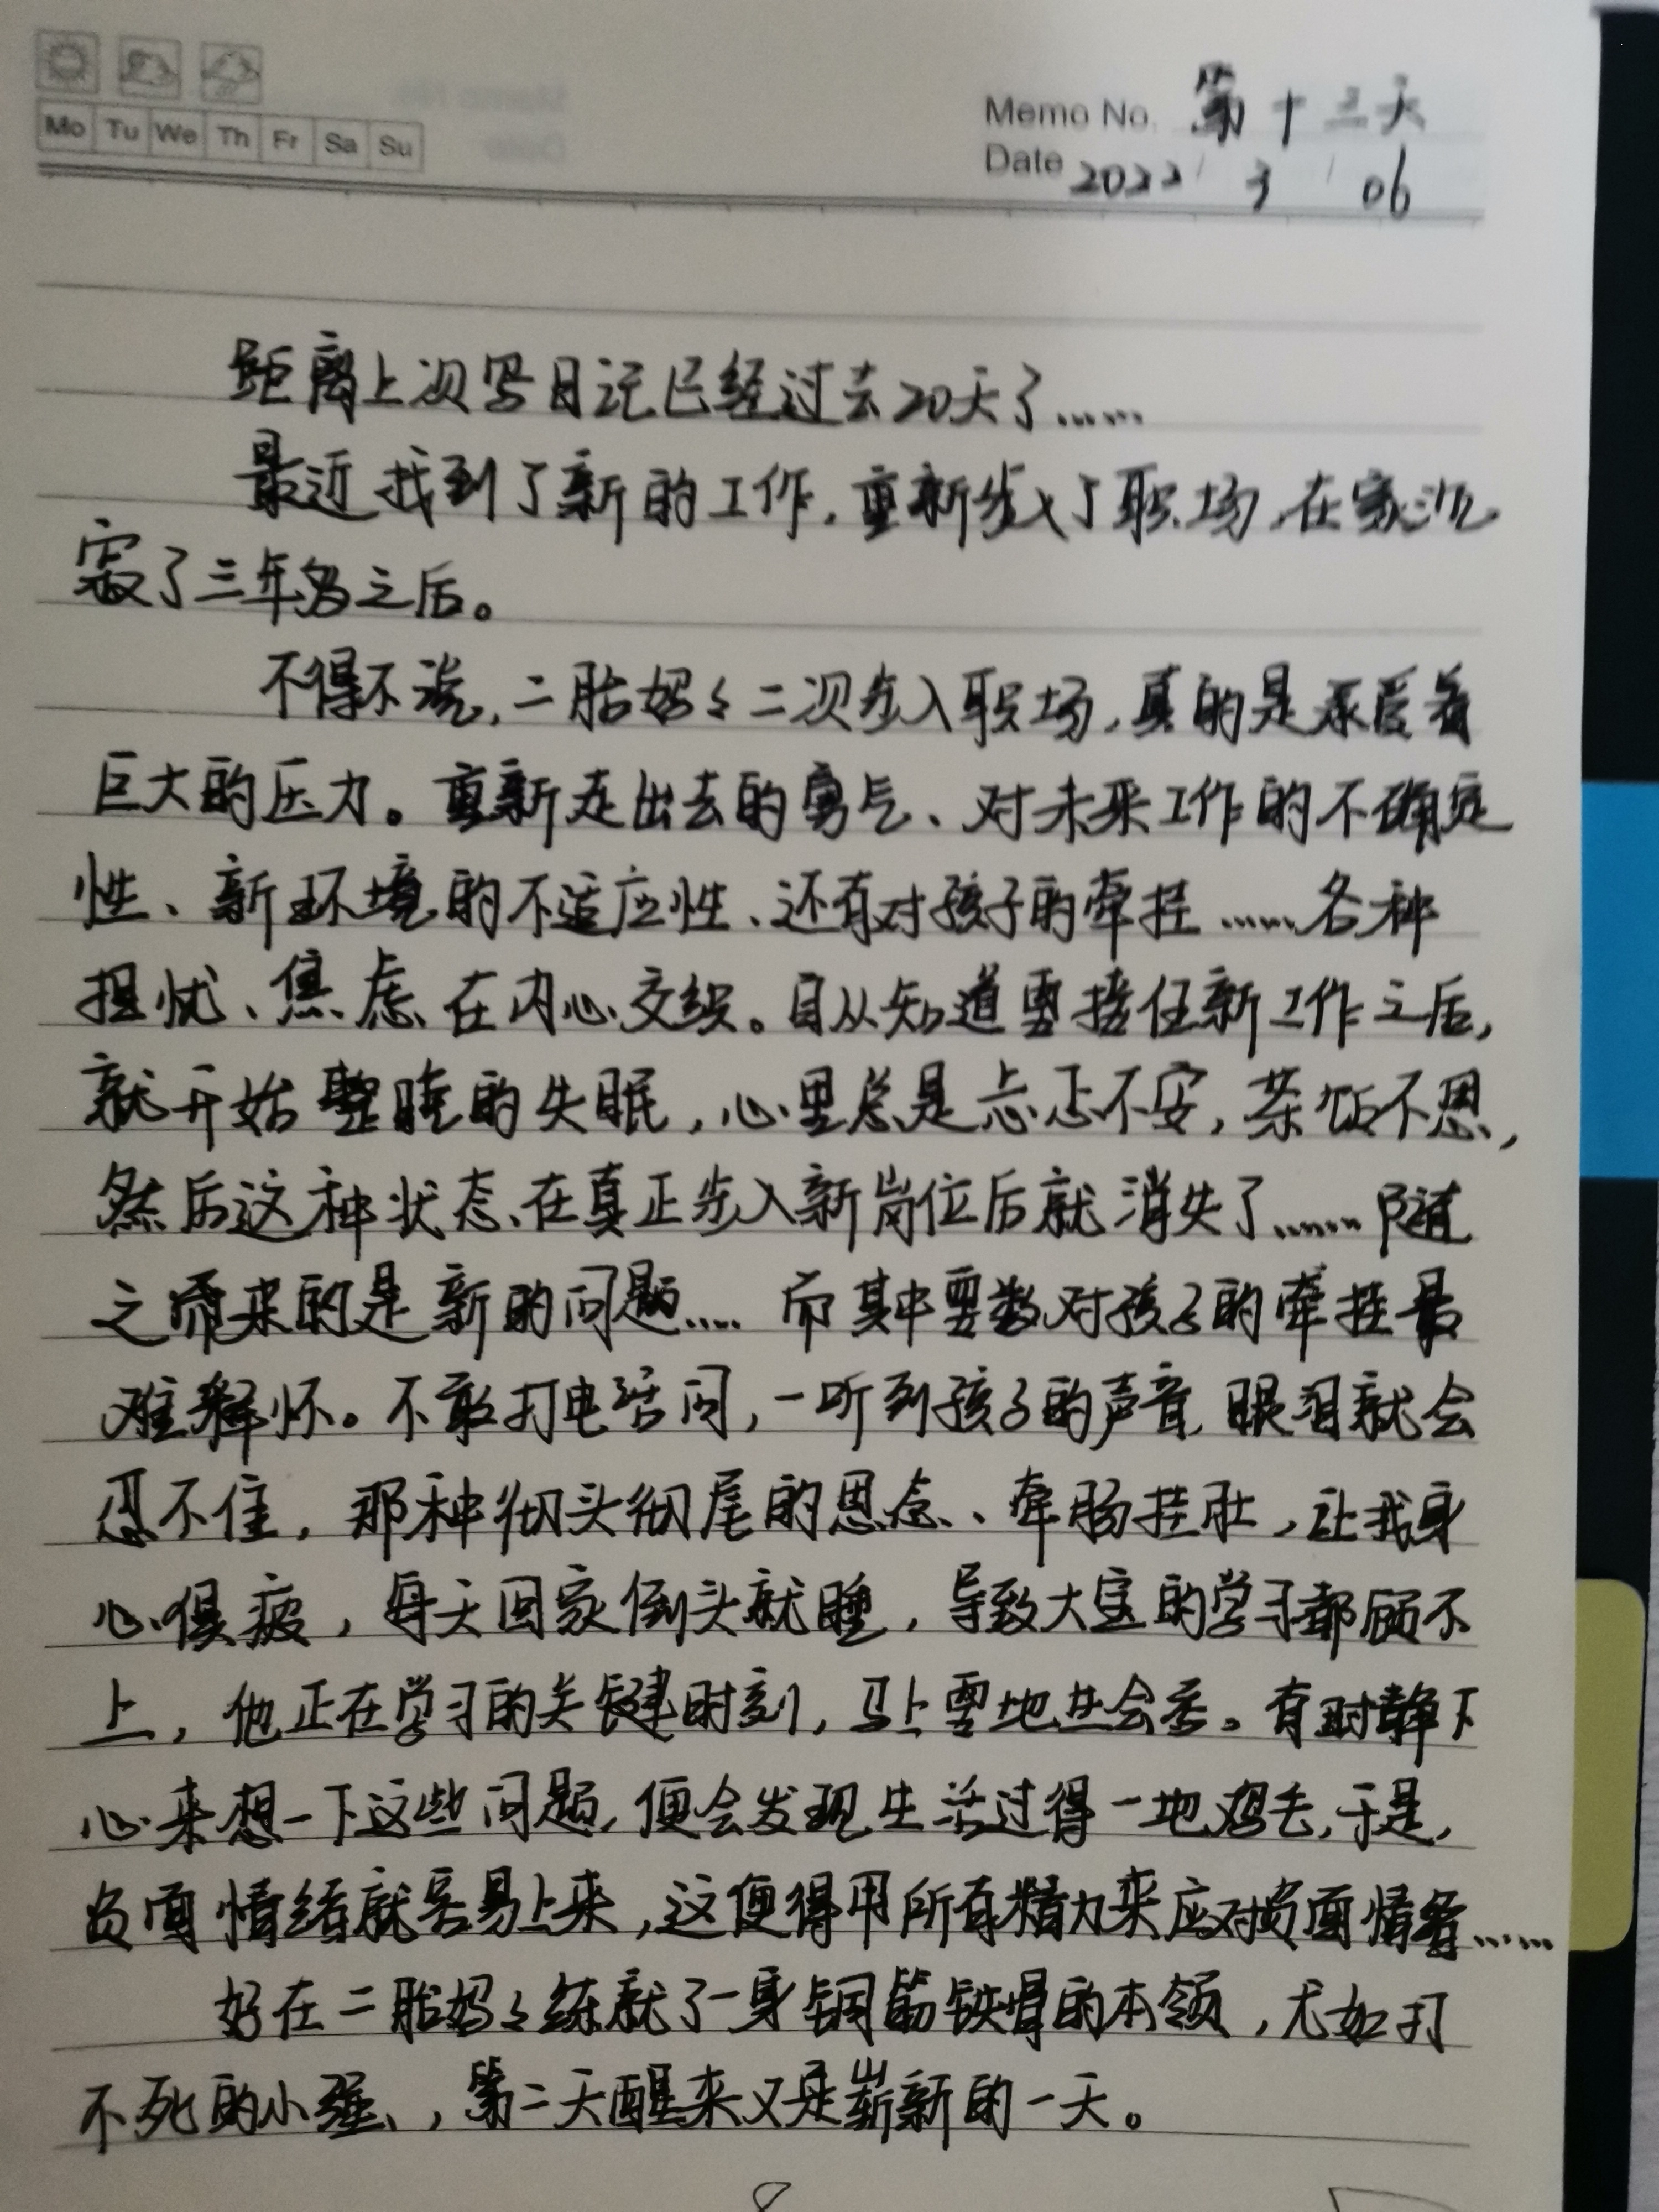 Mo Tu We Th Fr Sa Su
Memo No. 第十三天
Date 2022 / 3 / 06
距离上次写日记已经过去20天了……
最近找到了新的工作,重新步入了职场,在家沉
寂了三年多之后。
不得不说,二胎妈々二次步入职场,真的是承受着
巨大的压力。重新走出去的勇气、对未来工作的不确定
性、新环境的不适应性、还有对孩子的牵挂……各种
担忧、焦虑在内心交织。自从知道要接任新工作之后,
就开始整晚的失眠,心里总是忐忑不安,茶饭不思,
然后这种状态在真正步入新岗位后就消失了……随
之而来的是新的问题…… 而其中要数对孩子的牵挂最
难释怀。不敢打电话问,一听到孩子的声音,眼泪就会
忍不住,那种彻头彻尾的思念、牵肠挂肚,让我身
心俱疲,每天回家倒头就睡,导致大宝的学习都顾不
上,他正在学习的关键时刻,马上要地生会考。有时静下
心来想一下这些问题,便会发现生活过得一地鸡毛,于是,
负面情绪就容易上来,这便得用所有精力来应对负面情绪……
好在二胎妈々练就了一身钢筋铁骨的本领,尤如打
不死的小强,第二天醒来又是崭新的一天。